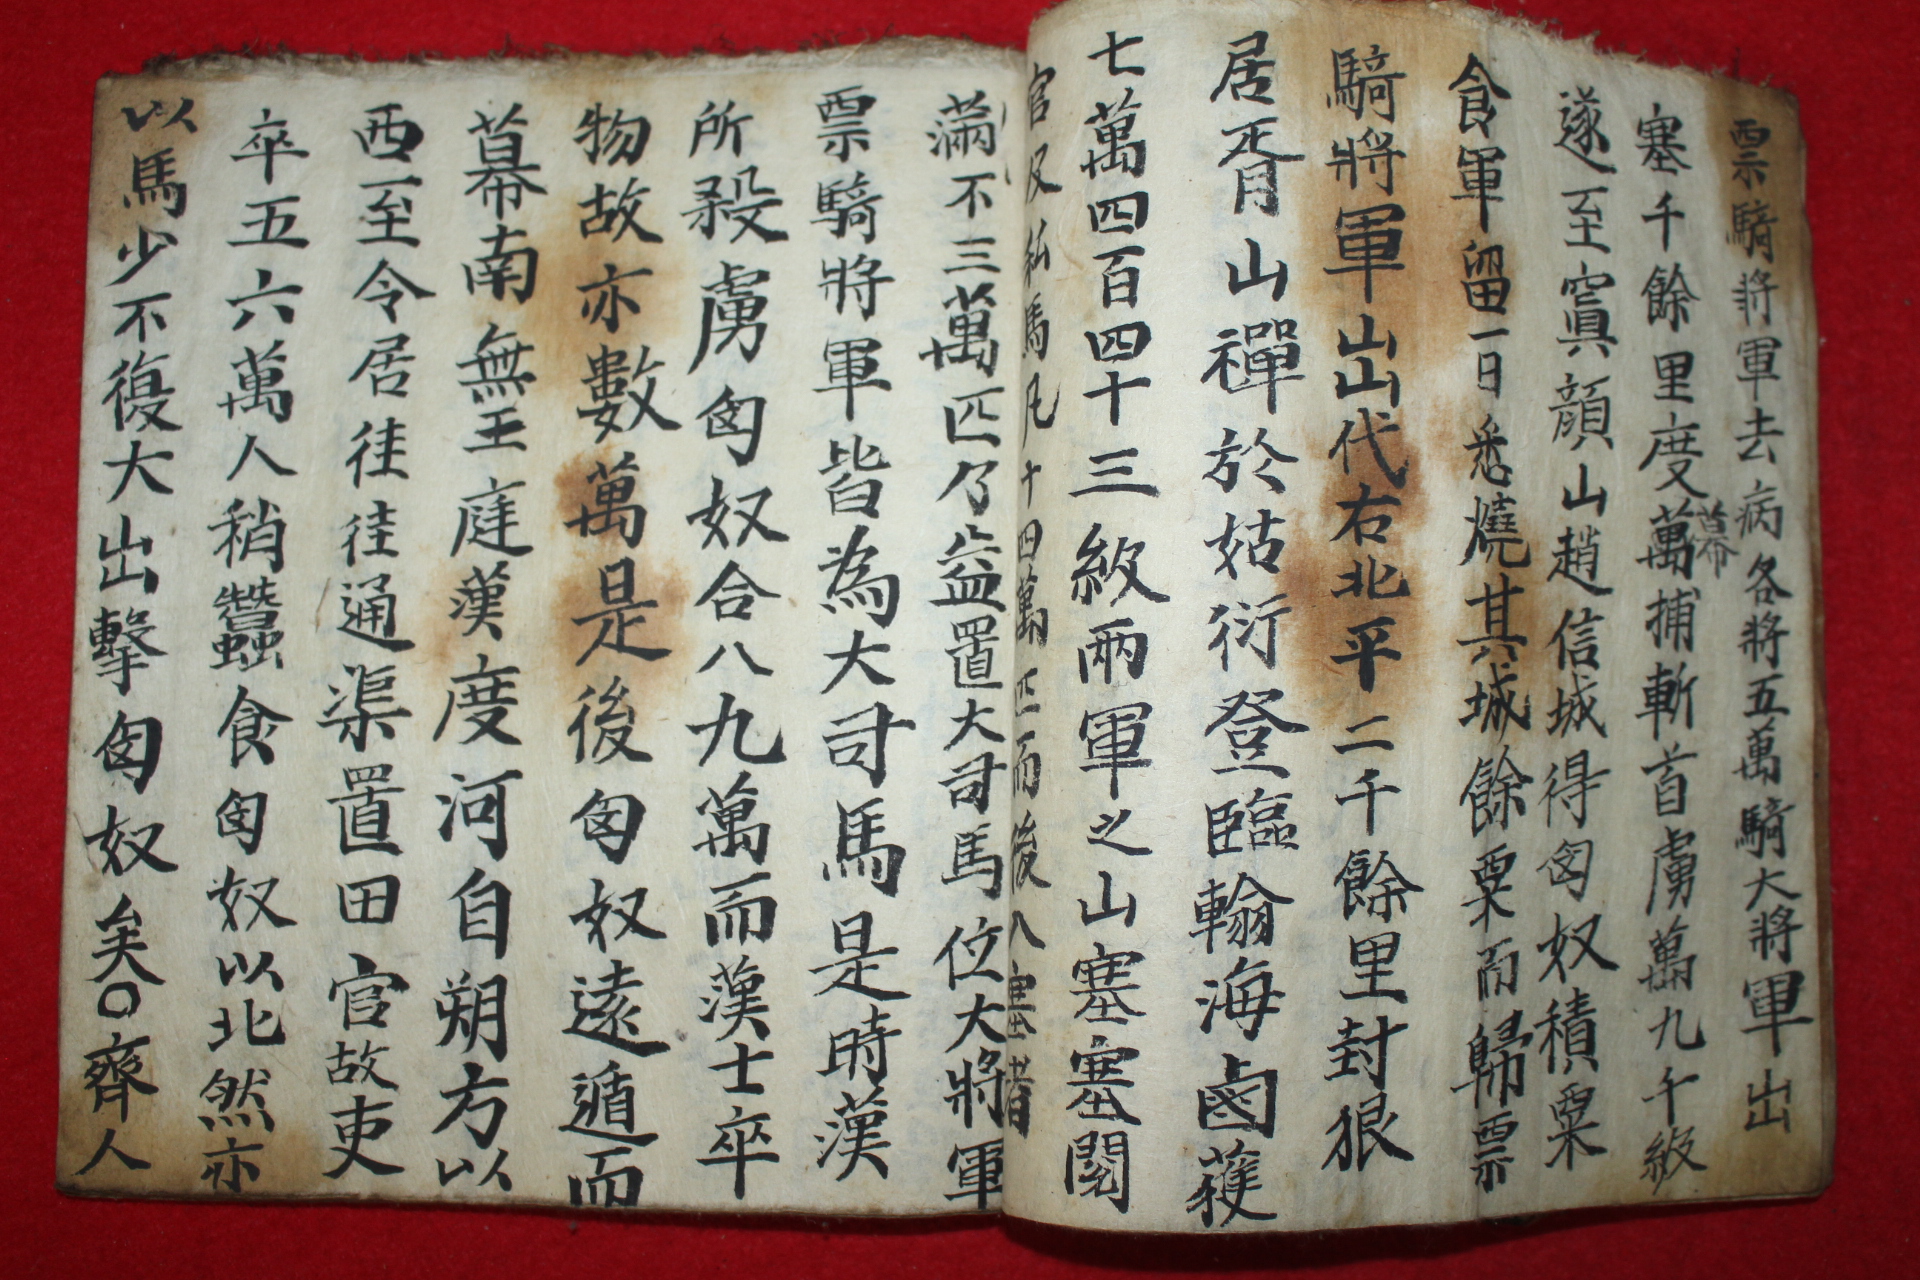 票騎將軍去病各將五萬騎大將軍出
塞千餘里度萬幕捕斬首虜萬九千級
遂至寘顔山趙信城得匈奴積粟
食軍留一日悉燒其城餘粟而歸票
騎將軍出代右北平二千餘里封狼
居胥山禪於姑衍登臨翰海鹵獲
七萬四百四十三級兩軍之出塞塞閱
官及私馬凡十四萬匹而後入塞者
滿不三萬匹乃益置大司馬位大將軍
票騎將軍皆為大司馬是時漢
所殺虜匈奴合八九萬而漢士卒
物故亦數萬是後匈奴遠遁而
幕南無王庭漢度河自朔方以
西至令居往往通渠置田官故吏
卒五六萬人稍蠶食匈奴以北然亦
以馬少不復大出擊匈奴矣○齊人